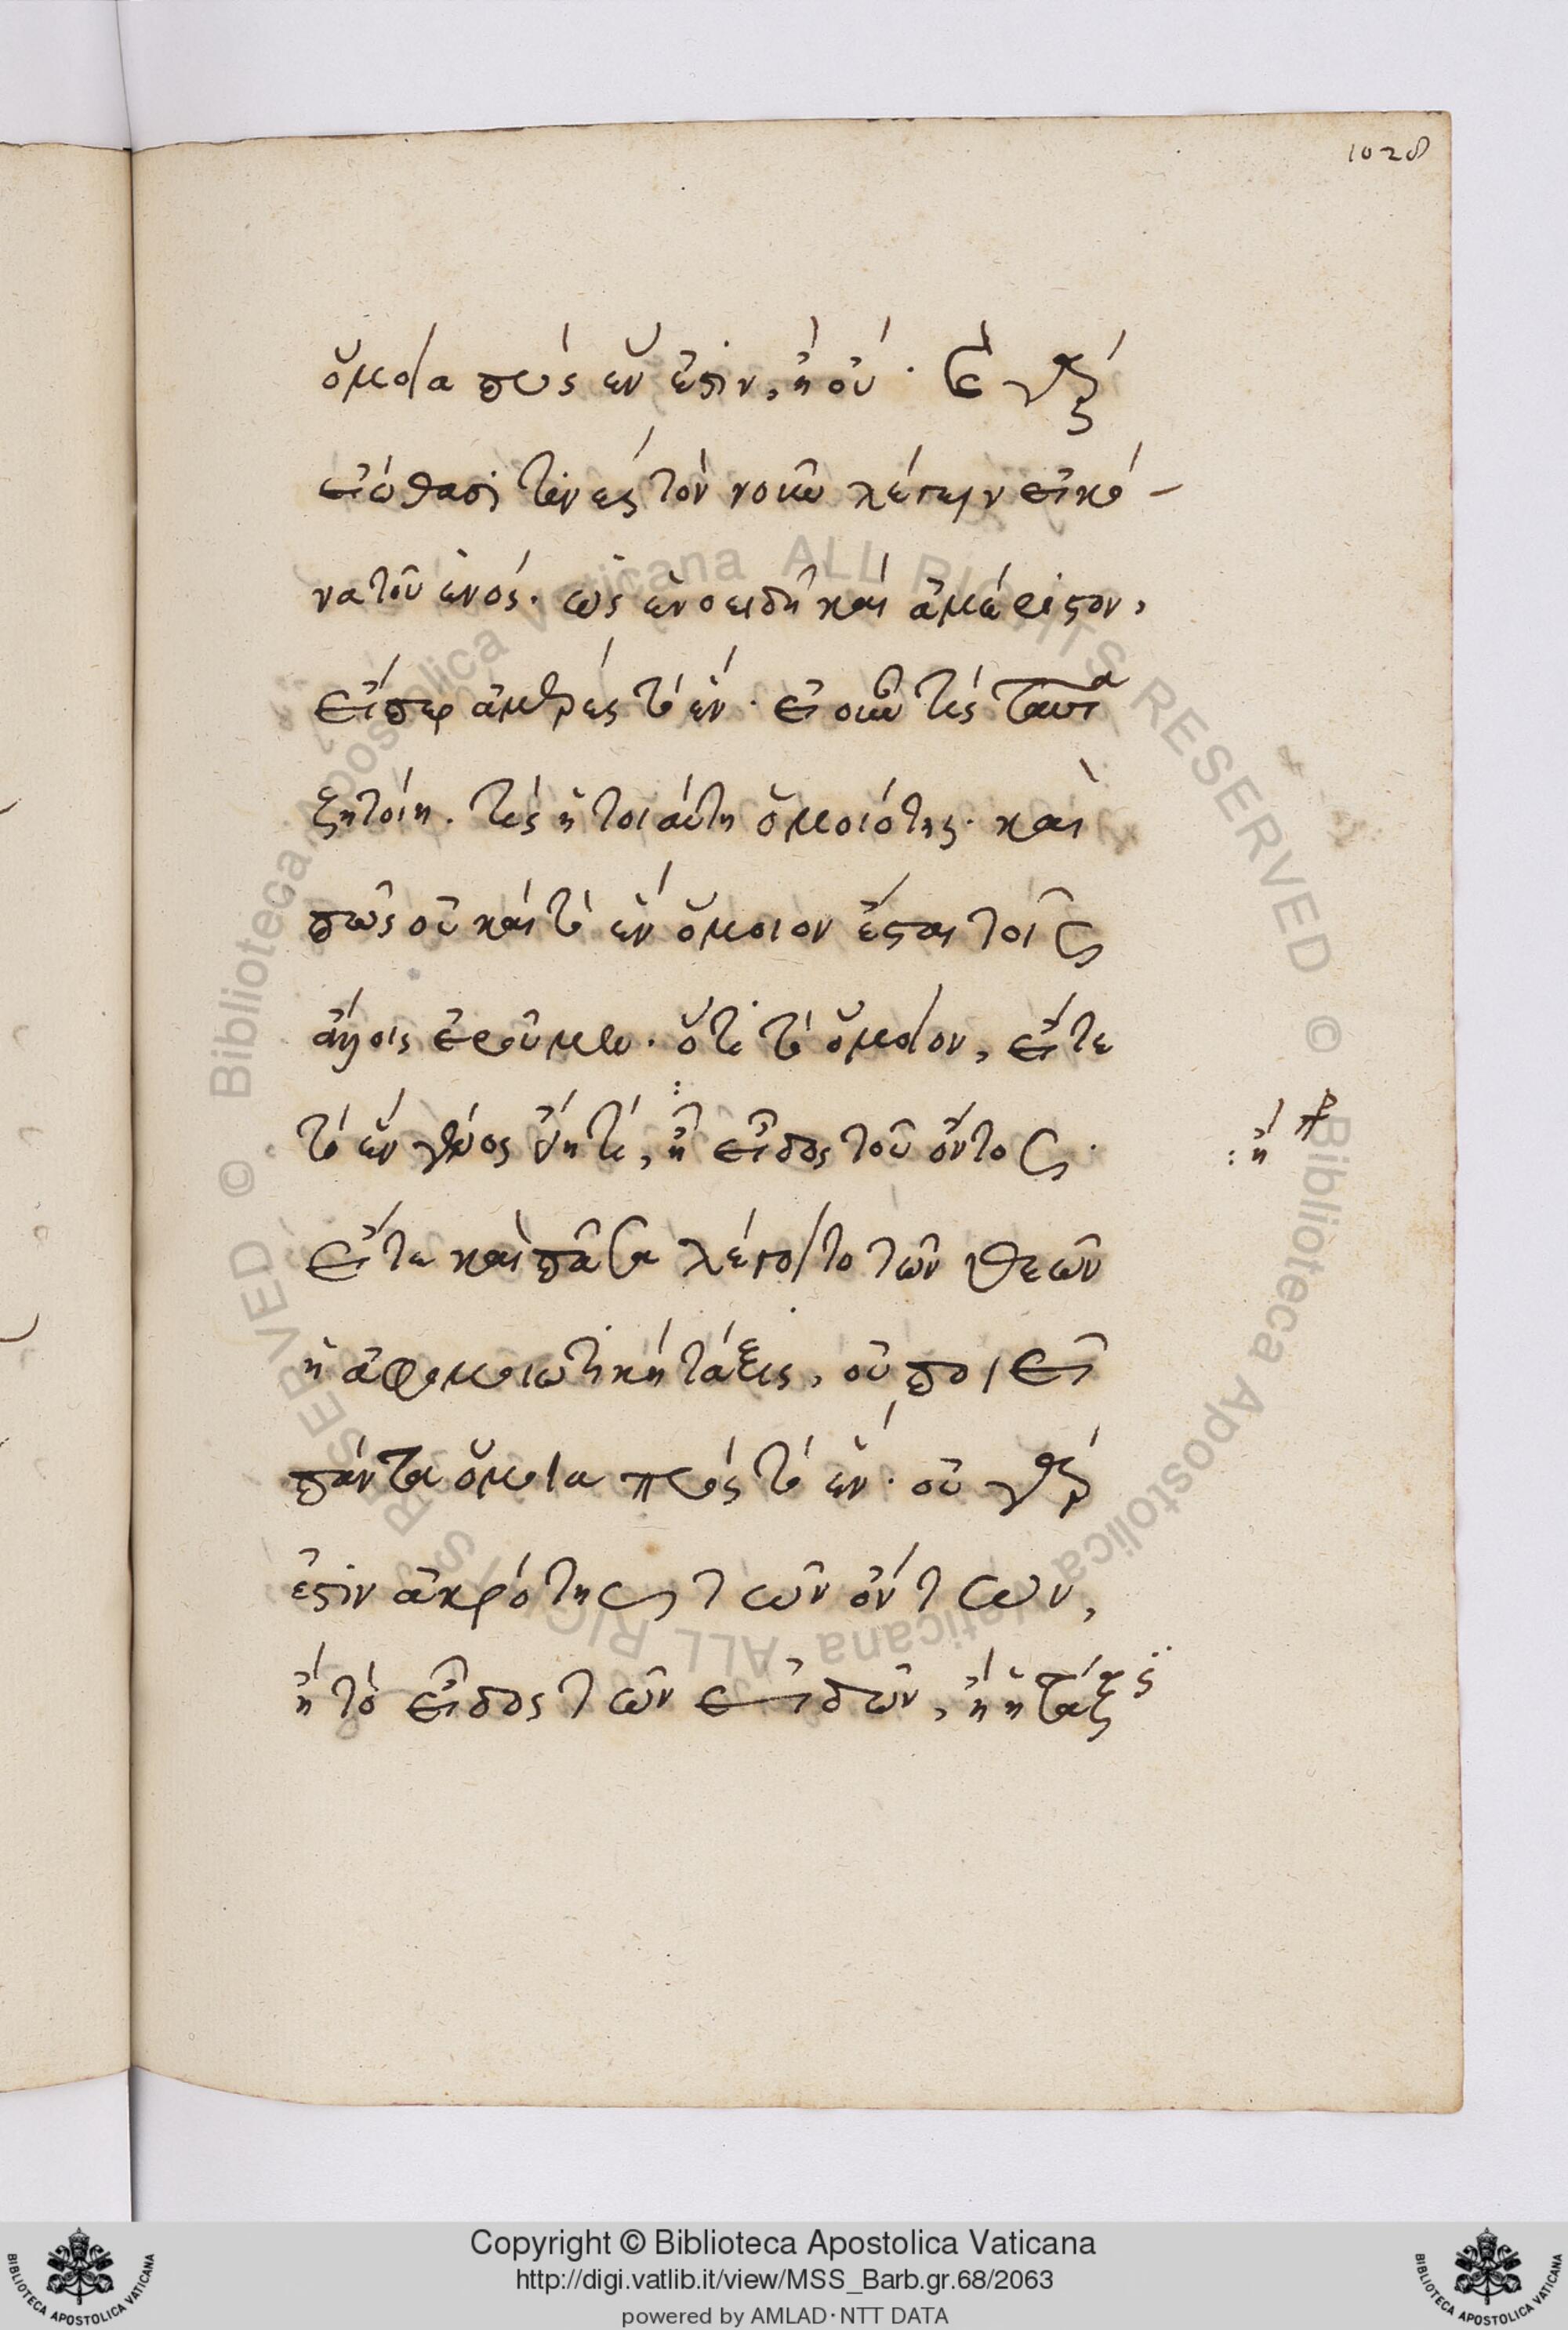 1028
ὅμοια πρὸς ἕν ἐστιν, ἢ οὔ. καὶ γὰρ
εἰώθασί τινες τὸν νοῦν λέγειν εἰκό-
να τοῦ ἑνός. ὡς ἑνοειδῆ καὶ ἀμέριστον,
εἴπερ ἀμερὲς τὸ ἕν. εἰ οὖν τίς ταῦτα
ζητοίη. τίς ἡ τοιαύτη ὁμοιότης. καὶ
πῶς οὐ καὶ τὸ ἓν ὅμοιον ἔσται τοῖς
ἄλλοις ἐροῦμεν. ὅτι τὸ ὅμοιον, εἴτε
τὸ ἓν γένος ᾖ τί, ἢ εἶδος τοῦ ὄντος.
: ἢ
εἴτε καὶ πᾶσα λέγοιτο τῶν θεῶν
ἡ ἀφομοιωτικὴ τάξις, οὐ ποιεῖ
πάντα ὅμοια πρὸς τὸ ἕν. οὐ γὰρ
ἐστὶν ἀκρότης τῶν ὄντων,
ἢ τὸ εἶδος τῶν εἰδῶν, ἢ ἡ τάξις
Copyright © Biblioteca Apostolica Vaticana
http://digi.vatlib.it/view/MSS_Barb.gr.68/2063
powered by AMLAD·NTT DATA
BIBLIOTECA APOSTOLICA VATICANA
BIBLIOTECA APOSTOLICA VATICANA
© Biblioteca Apostolica Vaticana ALL RIGHTS RESERVED © Biblioteca Apostolica Vaticana ALL RIGHTS RESERVED